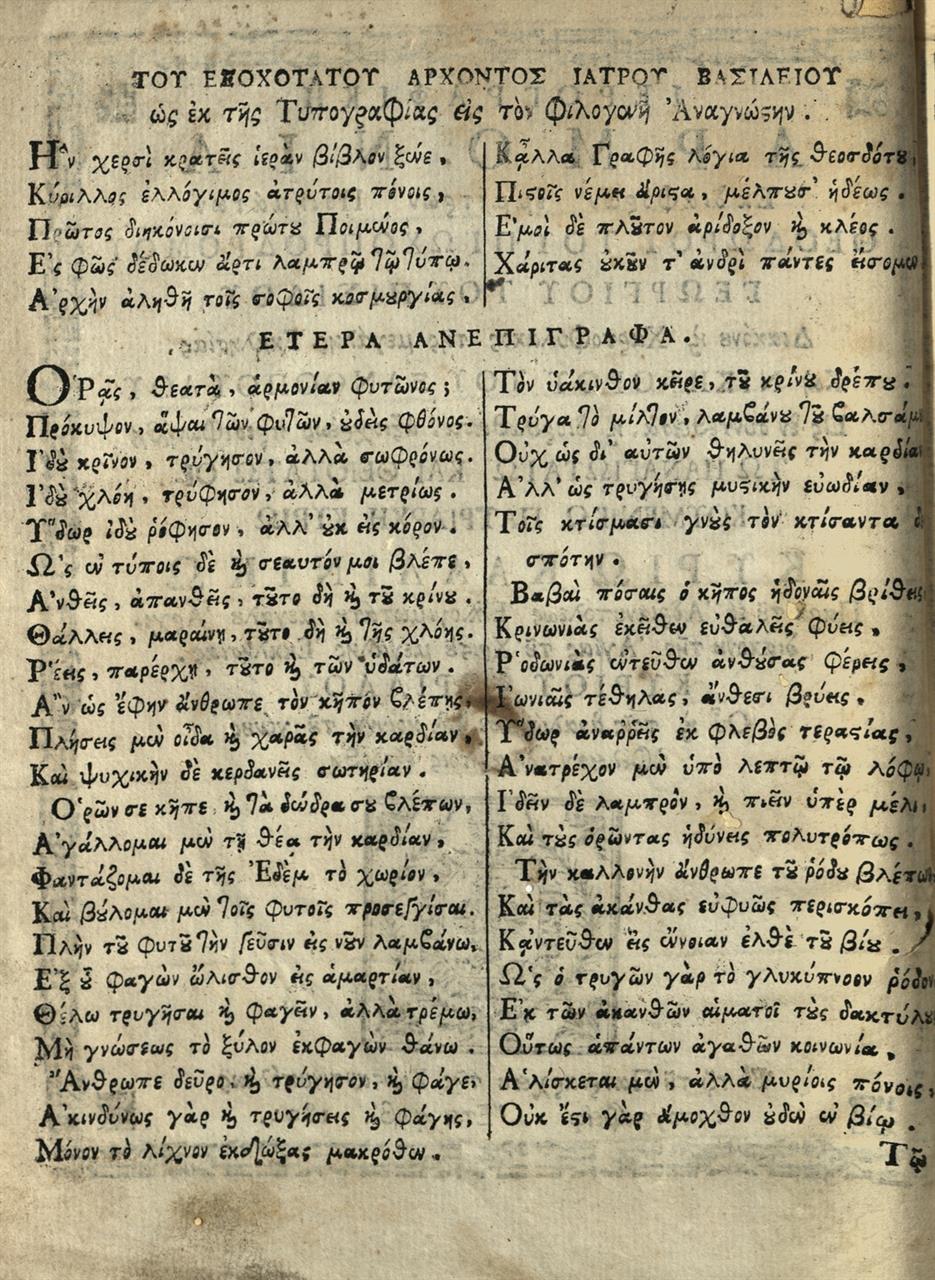 ΤΟΥ ΕΞΟΧΟΤΑΤΟΥ ΑΡΧΟΝΤΟΣ ΙΑΤΡΟΥ ΒΑΣΙΛΕΙΟΥ
ὡς ἐκ τῆς Τυπογραφίας εἰς τὸν Φιλογενῆ Ἀναγνώστην.
Ἣν χερσὶ κρατεῖς ἱερὰν βίβλον ξένε,
Κύριλλος ἐλλόγιμος ἀτρύτοις πόνοις,
Πρῶτος διηκόνοισι πρώτου Ποιμένος,
Ἐς φῶς δέδωκεν ἄρτι λαμπρῷ τῷ τύπῳ.
Ἀρχὴν ἀληθῆ τοῖς σοφοῖς κοσμουργίας,
Κἆλλα Γραφῆς λόγια τῆς θεοσδότου,
Πιστοῖς νέμει ἄριστα, μέλπουσ' ἡδέως.
Ἐμοὶ δὲ πλοῦτον ἀρίδοξον καὶ κλέος.
Χάριτας οὐκοῦν τ' ἀνδρὶ πάντες εἴσομεν
ΕΤΕΡΑ ΑΝΕΠΙΓΡΑΦΑ.
Ὁρᾷς, θεατὰ, ἁρμονίαν φυτῶνος;
Πρόκυψον, ἅψαι τῶν φυτῶν, οὐδεὶς φθόνος.
Ἰδοὺ κρῖνον, τρύγησον, ἀλλὰ σωφρόνως.
Ἰδοὺ χλόη, τρύφησον, ἀλλὰ μετρίως.
Ὕδωρ ἰδοὺ ῥόφησον, ἀλλ' οὐκ εἰς κόρον.
Ὡς ἐν τύποις δὲ καὶ σεαυτόν μοι βλέπε,
Ἀνθεῖς, ἀπανθεῖς, τοῦτο δὴ καὶ τοῦ κρίνου.
Θάλλεις, μαραίνῃ, τοῦτο δὴ καὶ τῆς χλόης.
Ῥέεις, παρέρχῃ, τοῦτο καὶ τῶν ὑδάτων.
Ἂν ὡς ἔφην ἄνθρωπε τὸν κῆπον βλέπῃς,
Πλήσεις μὲν οἶδα καὶ χαρᾶς τὴν καρδίαν,
Καὶ ψυχικὴν δὲ κερδανεῖς σωτηρίαν.
Ὁρῶν σε κῆπε καὶ τὰ δένδρα σου βλέπων,
Ἀγάλλομαι μὲν τῇ θέα τὴν καρδίαν,
Φαντάζομαι δὲ τῆς Ἐδὲμ τὸ χωρίον,
Καὶ βούλομαι μὲν τοῖς φυτοῖς προσεγγίσαι.
Πλὴν τοῦ φυτοῦ τὴν γεῦσιν εἰς νοῦν λαμβάνω,
Ἐξ οὗ φαγὼν ὤλισθον εἰς ἁμαρτίαν,
Θέλω τρυγῆσαι καὶ φαγεῖν, ἀλλὰ τρέμω,
Μὴ γνώσεως τὸ ξύλον ἐκφαγὼν θάνω.
Ἄνθρωπε δεῦρο, καὶ τρύγησον, καὶ φάγε,
Ἀκινδύνως γὰρ καὶ τρυγήσεις καὶ φάγῃς,
Μόνον τὸ λίχνον ἐκδιώξας μακρόθεν.
Τὸν ὑάκινθον κεῖρε, τοῦ κρίνου δρέπου.
Τρύγα τὸ μίλτον, λαμβάνου τοῦ
Οὐχ ὡς δι' αὐτῶν θηλυνεῖς τὴν καρδίαν
Ἀλλ' ὡς τρυγήσῃς μυστικὴν εὐωδίαν,
Τοῖς κτίσμασι γνοὺς τὸν κτίσαντα δε
σπότην.
Βαβαὶ πόσαις ὁ κῆπος ἡδοναῖς βρίθεις
Κρινωνιὰς ἐκεῖθεν εὐθαλεῖς φύεις,
Ῥοδωνιὰς ἐντεῦθεν ἀνθούσας φέρεις,
Ἰωνιαῖς τέθηλας, ἄνθεσι βρύεις,
Ὕδωρ ἀναρρεῖς ἐκ φλεβὸς τεραστίας,
Ἀνατρέχον μὲν ὑπὸ λεπτῷ τῷ λόφῳ,
Ἰδεῖν δὲ λαμπρὸν, καὶ πιεῖν ὑπὲρ μέλι,
Καὶ τοὺς ὁρῶντας ἡδύνεις πολυτρόπως.
Τὴν καλλονὴν ἄνθρωπε τοῦ ῥόδου βλέπων
Καὶ τὰς ἀκάνθας εὐφυῶς περισκόπει,
Κἀντεῦθεν εἰς ἔννοιαν ἐλθὲ τοῦ βίου.
Ὡς ὁ τρυγῶν γὰρ τὸ γλυκύπνοον ῥόδον
Ἐκ τῶν ἀκανθῶν αἱματοῖ τοὺς δακτύλους
Οὕτως ἁπάντων ἀγαθῶν κοινωνία,
Ἁλίσκεται μὲν, ἀλλὰ μυρίοις πόνοις,
Οὐκ ἔστι γὰρ ἄμοχθον οὐδὲν ἐν βίῳ.
Τῷ